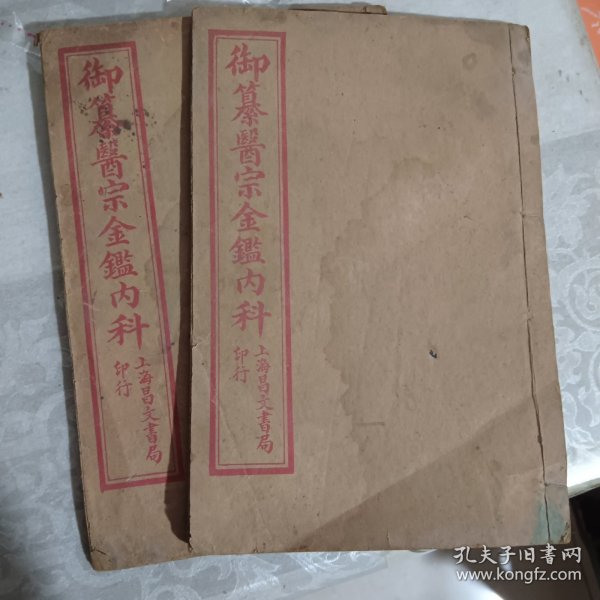 御纂醫宗金鑑内科
上海昌文書局
印行
御纂醫宗金鑑内科
上海昌文書局
印行
孔夫子旧書网
www.kongfz.com